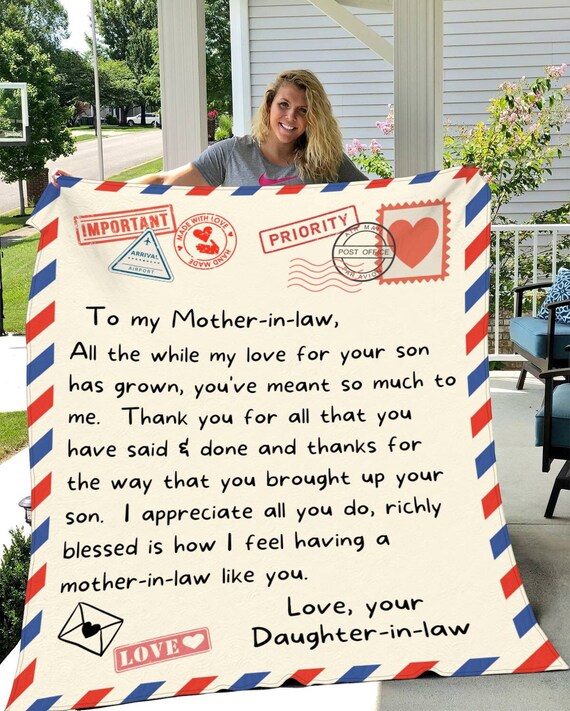 IMPORTANT
MADE WITH LOVE
HAND MADE
ARRIVAL
AIRPORT
PRIORITY
AIR MAIL
POST OFFICE
PAR AVION
To my Mother-in-law,
All the while my love for your son
has grown, you've meant so much to
me. Thank you for all that you
have said & done and thanks for
the way that you brought up your
son. I appreciate all you do, richly
blessed is how I feel having a
mother-in-law like you.
Love, your
Daughter-in-law
LOVE